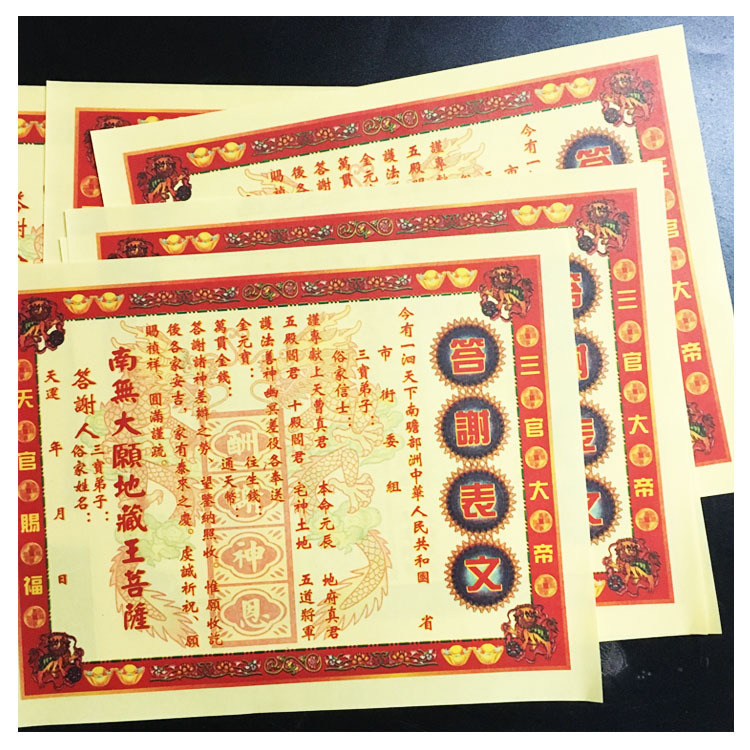 三官大帝
答謝表文
今有一泗天下南瞻部洲中華人民共和國 省
市 街 委 組
三寶弟子：
俗家信士：
謹專獻上天曹真君 本命元辰 地府真君
五殿閻君 十殿閻君 宅神土地 五道將軍
護法善神幽冥差役各奉送
金元寶： 往生錢：
萬貫金錢： 通天幣：
答謝諸神差辦之勞。望鑒納照收。惟願收訖
後各家安吉，家有泰來之慶。虔誠祈祝、願
賜禎祥。圓滿謹疏。
南無大願地藏王菩薩
答謝人 三寶弟子：
俗家姓名：
天運 年 月 日
天官賜福
酬
神
恩
三官大帝
文
官大帝
答
今有一
市
謹專獻
五殿閻
護法善
金元寶
萬貫
答謝
後各
賜
答謝人